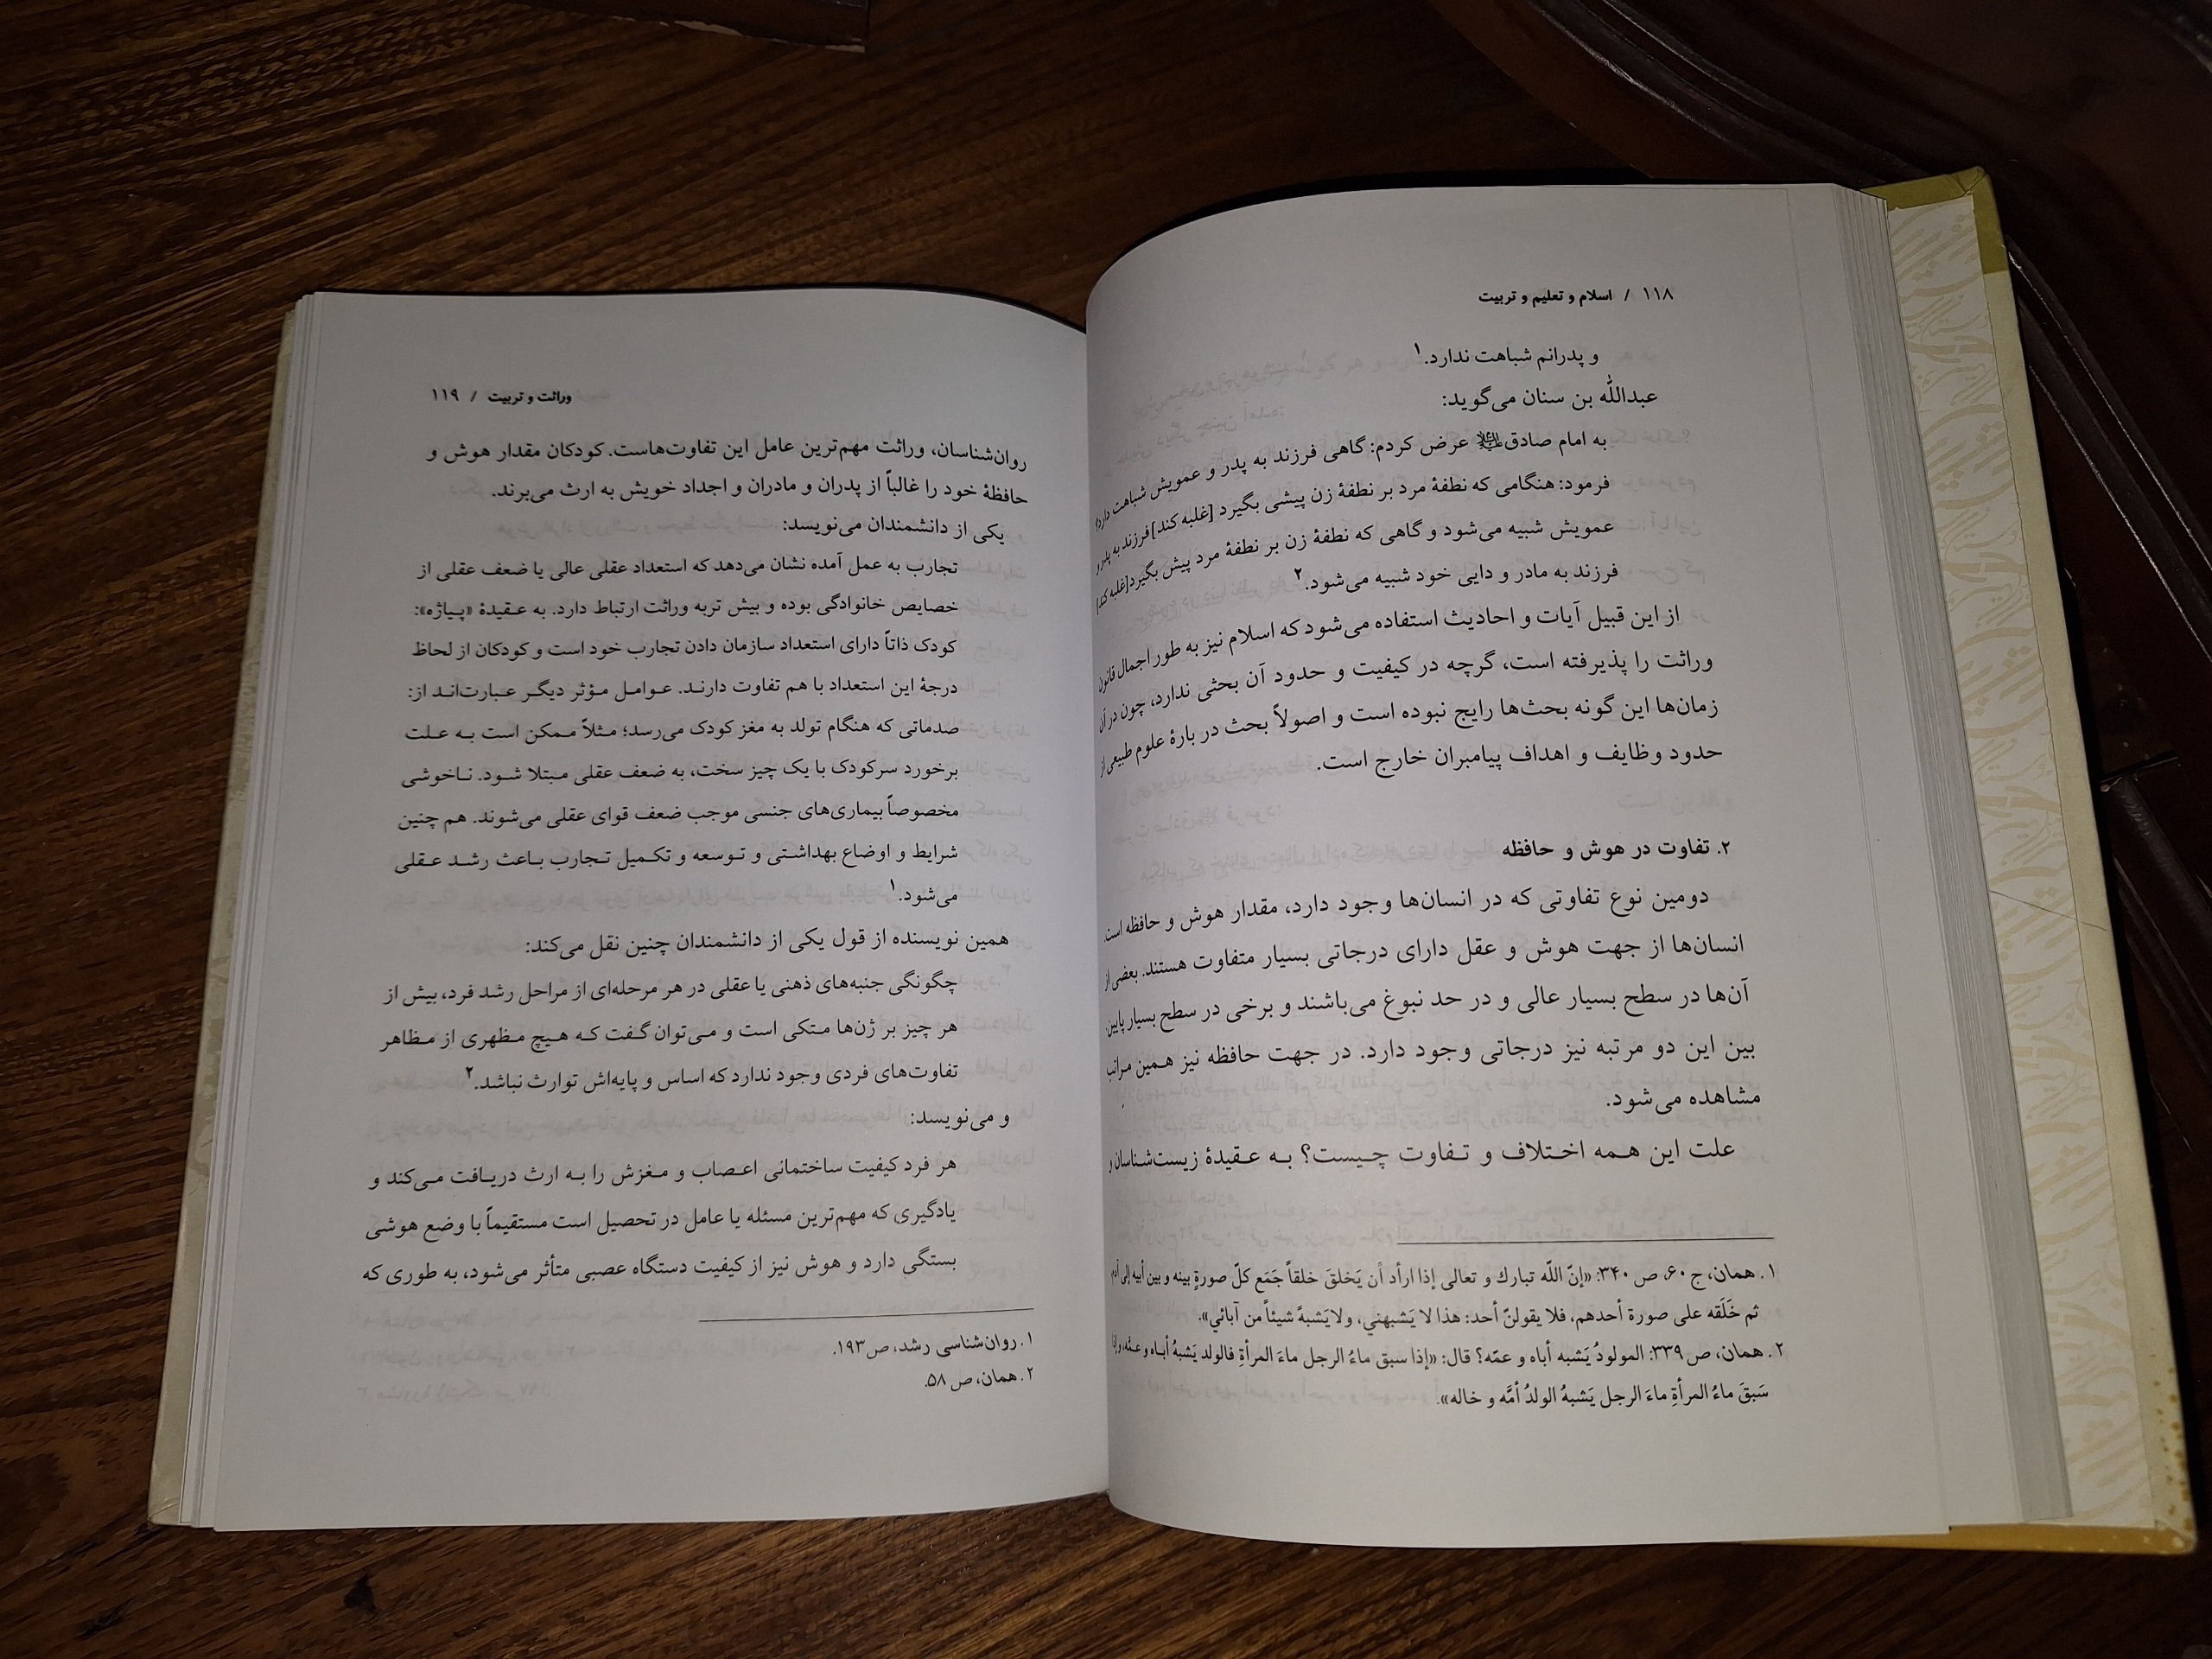 ۱۱۸ / اسلام و تعلیم و تربیت
و پدرانم شباهت ندارد.۱
عبداللّٰه بن سنان می‌گوید:
به امام صادق علیه‌السلام عرض کردم: گاهی فرزند به پدر و عمویش شباهت دارد؟
فرمود: هنگامی که نطفهٔ مرد بر نطفهٔ زن پیشی بگیرد [غلبه کند] فرزند به پدر و
عمویش شبیه می‌شود و گاهی که نطفهٔ زن بر نطفهٔ مرد پیش بگیرد[غلبه کند]
فرزند به مادر و دایی خود شبیه می‌شود.۲
از این قبیل آیات و احادیث استفاده می‌شود که اسلام نیز به طور اجمال قانون
وراثت را پذیرفته است، گرچه در کیفیت و حدود آن بحثی ندارد، چون در آن
زمان‌ها این گونه بحث‌ها رایج نبوده است و اصولاً بحث در بارهٔ علوم طبیعی از
حدود وظایف و اهداف پیامبران خارج است.
۲. تفاوت در هوش و حافظه
دومین نوع تفاوتی که در انسان‌ها وجود دارد، مقدار هوش و حافظه است.
انسان‌ها از جهت هوش و عقل دارای درجاتی بسیار متفاوت هستند. بعضی از
آن‌ها در سطح بسیار عالی و در حد نبوغ می‌باشند و برخی در سطح بسیار پایین،
بین این دو مرتبه نیز درجاتی وجود دارد. در جهت حافظه نیز همین مراتب
مشاهده می‌شود.
علت این همه اختلاف و تفاوت چیست؟ به عقیدهٔ زیست‌شناسان و
۱. همان، ج ۶۰، ص ۳۴۰: «إنّ اللّه تبارك و تعالى إذا ارأد أن يَخلقَ خلقاً جَمَع كلّ صورةٍ بينه و بين أبيه إلى آدم
ثم خَلَقه على صورة أحدهم، فلا يقولنّ أحد: هذا لا يَشبهني، ولايَشبهُ شيئاً من آبائي».
۲. همان، ص ۳۳۹: المولودُ يَشبه أباه و عمّه؟ قال: «إذا سبق ماءُ الرجل ماءَ المرأةِ فالولد يَشبهُ أبـاه و عمّه، وإذا
سَبقَ ماءُ المرأةِ ماءَ الرجل يَشبهُ الولدُ أمَّه و خاله».
وراثت و تربیت / ۱۱۹
روان‌شناسان، وراثت مهم‌ترین عامل این تفاوت‌هاست. کودکان مقدار هوش و
حافظهٔ خود را غالباً از پدران و مادران و اجداد خویش به ارث می‌برند.
یکی از دانشمندان می‌نویسد:
تجارب به عمل آمده نشان می‌دهد که استعداد عقلی عالی یا ضعف عقلی از
خصایص خانوادگی بوده و بیش تربه وراثت ارتباط دارد. به عقیدهٔ «پیاژه»:
کودک ذاتاً دارای استعداد سازمان دادن تجارب خود است و کودکان از لحاظ
درجهٔ این استعداد با هم تفاوت دارند. عوامل مؤثر دیگر عبارت‌اند از:
صدماتی که هنگام تولد به مغز کودک می‌رسد؛ مثلاً ممکن است به علت
برخورد سرکودک با یک چیز سخت، به ضعف عقلی مبتلا شود. ناخوشی
مخصوصاً بیماری‌های جنسی موجب ضعف قوای عقلی می‌شوند. هم چنین
شرایط و اوضاع بهداشتی و توسعه و تکمیل تجارب باعث رشد عقلی
می‌شود.۱
همین نویسنده از قول یکی از دانشمندان چنین نقل می‌کند:
چگونگی جنبه‌های ذهنی یا عقلی در هر مرحله‌ای از مراحل رشد فرد، بیش از
هر چیز بر ژن‌ها متکی است و می‌توان گفت که هیچ مظهری از مظاهر
تفاوت‌های فردی وجود ندارد که اساس و پایه‌اش توارث نباشد.۲
و می‌نویسد:
هر فرد کیفیت ساختمانی اعصاب و مغزش را به ارث دریافت می‌کند و
یادگیری که مهم‌ترین مسئله یا عامل در تحصیل است مستقیماً با وضع هوشی
بستگی دارد و هوش نیز از کیفیت دستگاه عصبی متأثر می‌شود، به طوری که
۱. روان‌شناسی رشد، ص۱۹۳.
۲. همان، ص ۵۸.